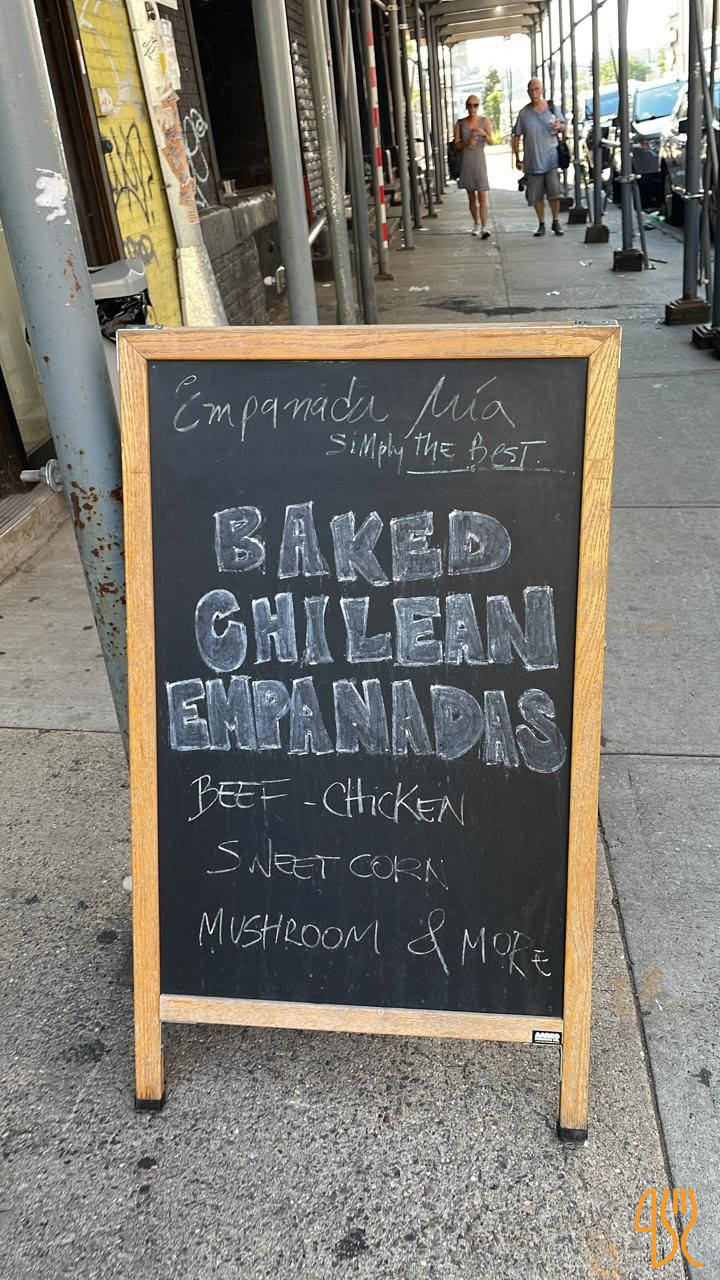 Empanada Mía
Simply THE BEST.
BAKED
CHILEAN
EMPANADAS
BEEF - CHICKEN
SWEET CORN
MUSHROOM & MORE